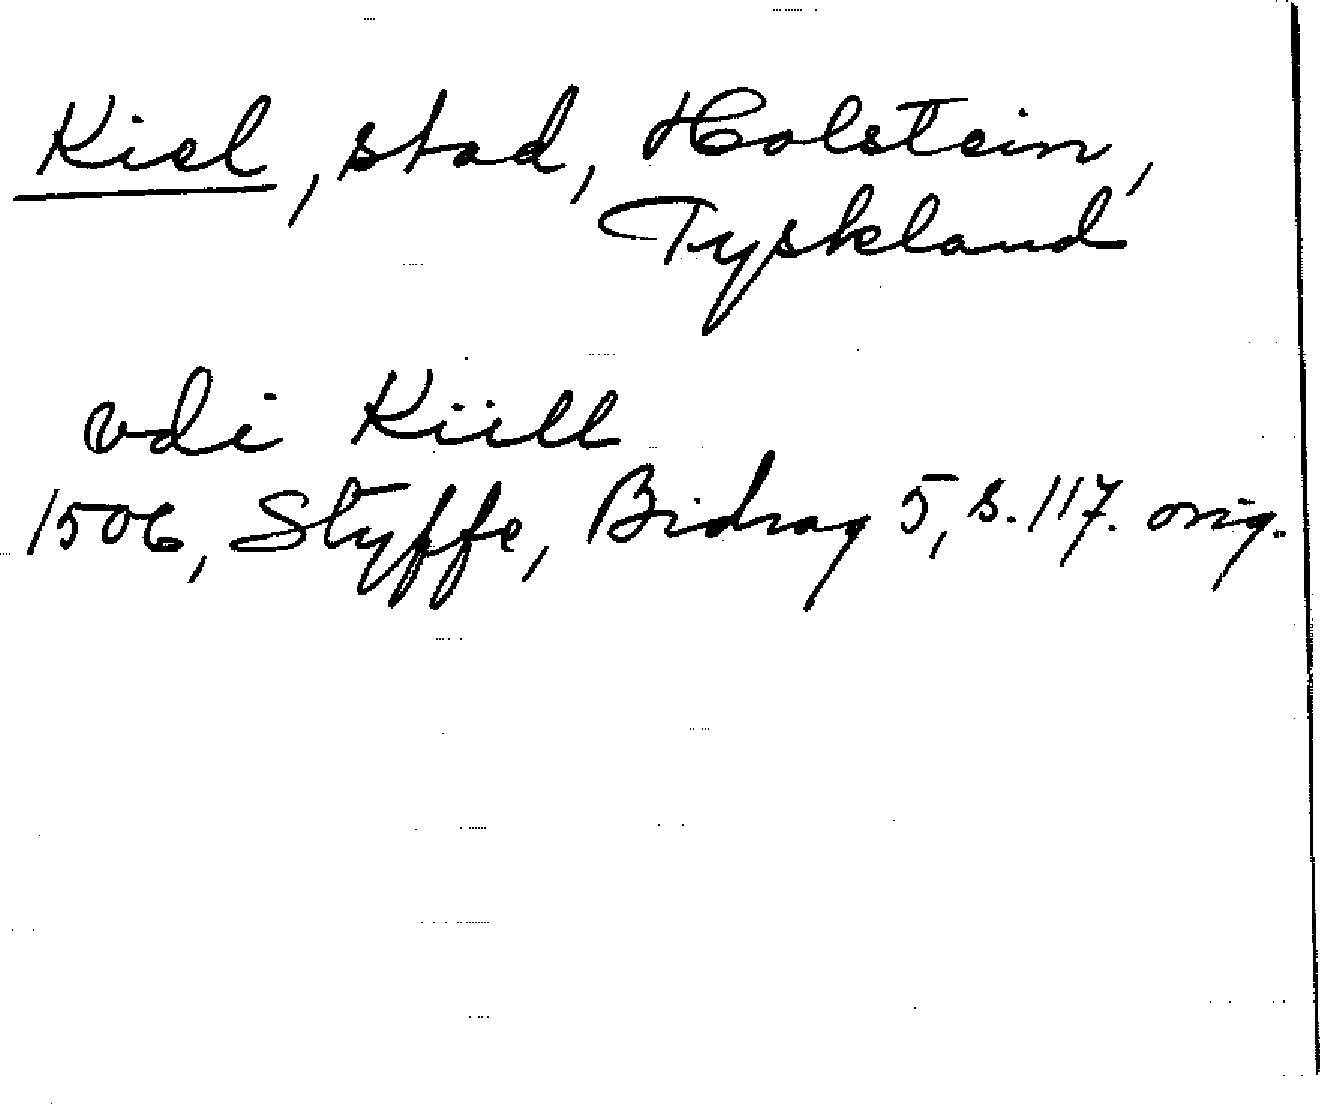 Kiel, stad, Holstein,
Tyskland
vdi Kiill
1506, Styffe, Bidrag 5, s. 117. orig.